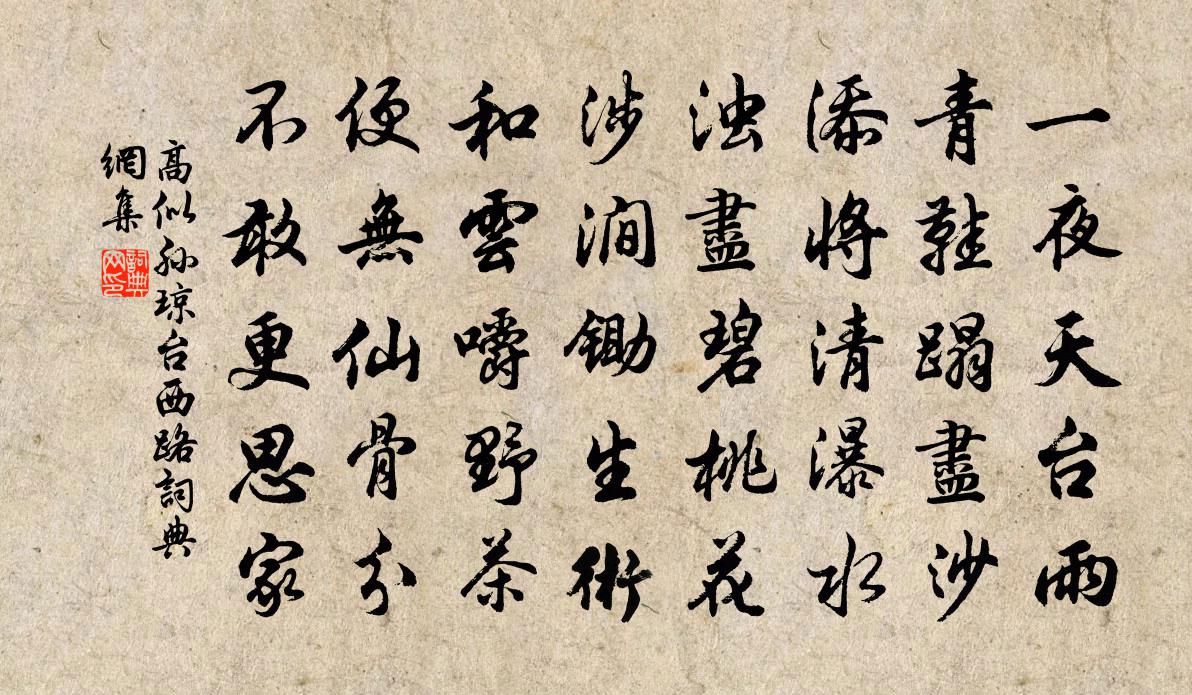 一夜天台雨
青鞋蹋盡沙
添將清瀑水
浊盡碧桃花
涉澗鋤生術
和雲嚼野茶
便無仙骨分
不敢更思家
高似孫琼台西路詞典
網集
詞典
网印